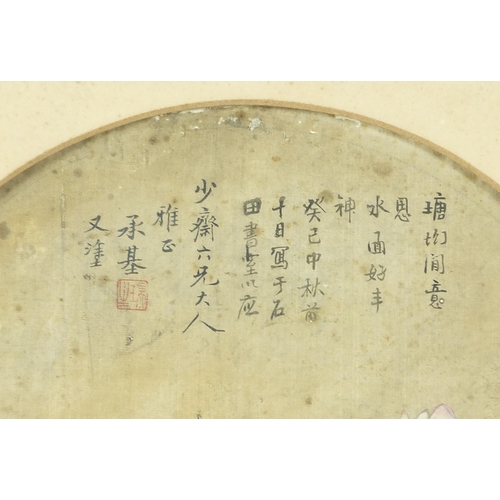 塘坳閒意
思
水面好丰
神
癸巳中秋前
十日寫于石
田書堂以應
少齋六兄大人
雅正
承基
又塗